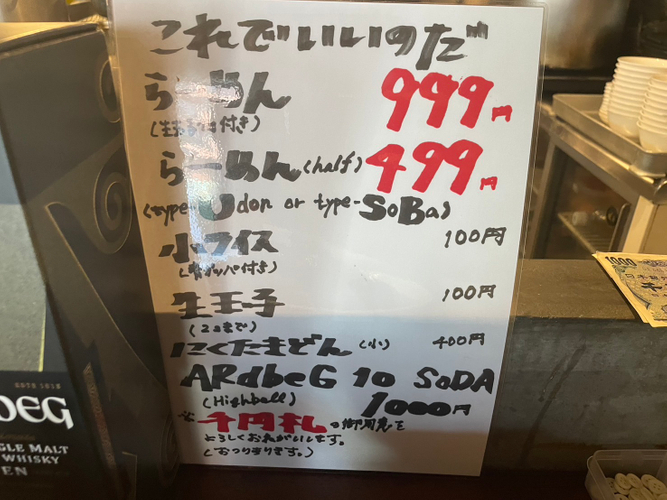 これでいいのだ
らーめん 999円
(生玉子2コ付き)
らーめん(half) 499円
(type-Udon or type-SoBa)
小ライス 100円
付き)
生玉子 100円
(2コまで)
にくたまどん(小) 400円
ARdbeG 10 SoDA
(Highball) 1000円
千円札の御用意を
よろしくおねがいします。
(おつりあります。)
DEG
GLE MALT
WHISKY
EN
1000